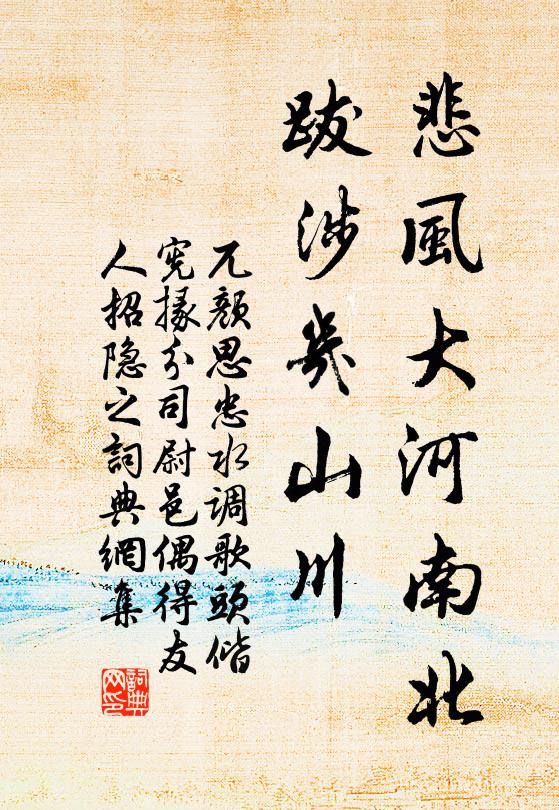 悲風大河南北
跋涉幾山川
兀顏思忠水调歌頭偕
宪掾分司尉邑偶得友
人招隐之詞典網集
詞典网印